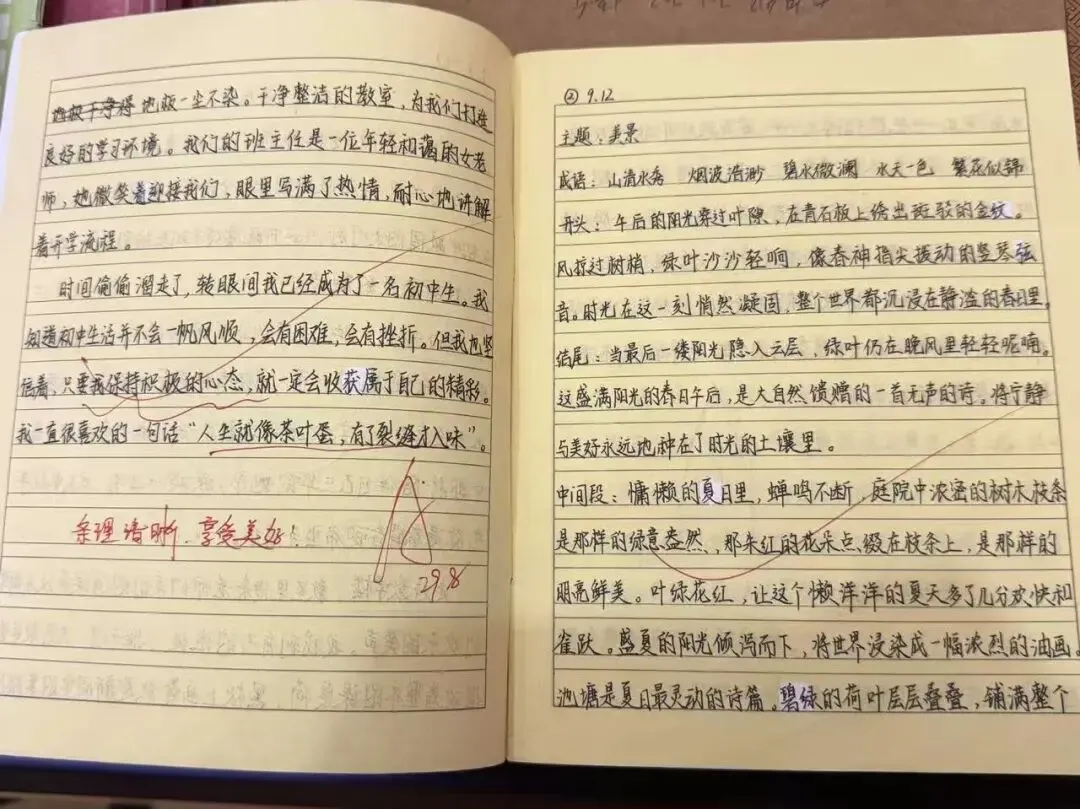 地板一尘不染。干净整洁的教室，为我们打造
良好的学习环境。我们的班主任是一位年轻和蔼的女老
师，她微笑着迎接我们，眼里写满了热情，耐心地讲解
着开学流程。
时间偷偷溜走了，转眼间我已经成为了一名初中生。我
知道初中生活并不会一帆风顺，会有困难，会有挫折。但我也坚
信着，只要我保持积极的心态，就一定会收获属于自己的精彩。
我一直很喜欢的一句话“人生就像茶叶蛋，有了裂缝才入味”。
条理清晰．享受美好！
29.8
② 9.12
主题：美景
成语：山清水秀 烟波浩渺 碧水微澜 水天一色 繁花似锦
开头：午后的阳光穿过叶隙，在青石板上绘出斑驳的金纹。
风掠过树梢，绿叶沙沙轻响，像春神指尖拨动的竖琴弦
音。时光在这一刻悄然凝固，整个世界都沉浸在静谧的春日里。
结尾：当最后一缕阳光隐入云层，绿叶仍在晚风里轻轻呢喃。
这盛满阳光的春日午后，是大自然馈赠的一首无声的诗。将宁静
与美好永远地种在了时光的土壤里。
中间段：慵懒的夏日里，蝉鸣不断，庭院中浓密的树木枝条
是那样的绿意盎然，那朱红的花朵点缀在枝条上，是那样的
明亮鲜美。叶绿花红，让这个懒洋洋的夏天多了几分欢快和
雀跃。盛夏的阳光倾泻而下，将世界浸染成一幅浓烈的油画。
池塘是夏日最灵动的诗篇。碧绿的荷叶层层叠叠，铺满整个